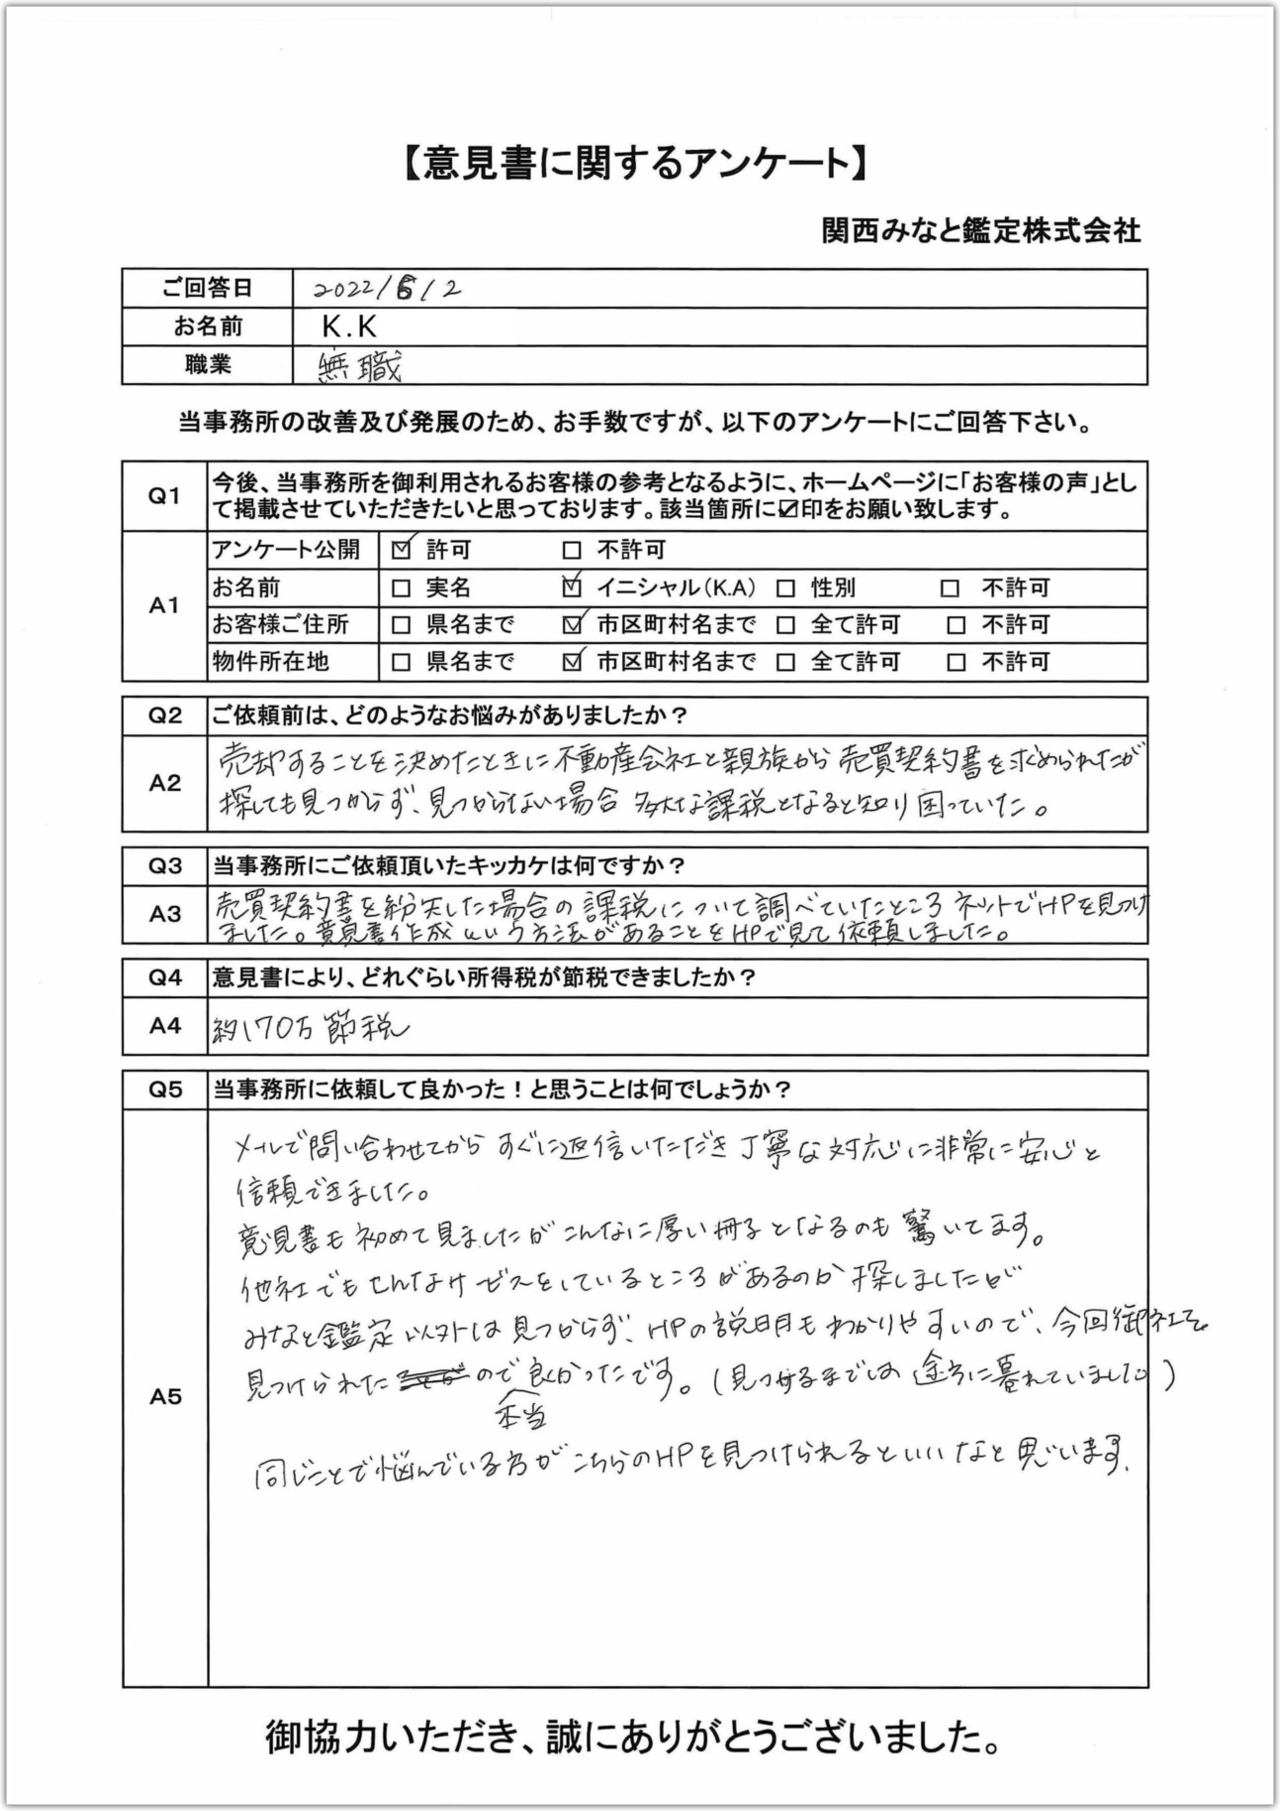 【意見書に関するアンケート】
関西みなと鑑定株式会社
ご回答日 2022/6/2
お名前 K.K
職業 無職
当事務所の改善及び発展のため、お手数ですが、以下のアンケートにご回答下さい。
Q1 今後、当事務所を御利用されるお客様の参考となるように、ホームページに「お客様の声」とし
て掲載させていただきたいと思っております。該当箇所に☑印をお願い致します。
A1
アンケート公開 ☑ 許可 □ 不許可
お名前 □ 実名 ☑ イニシャル(K.A) □ 性別 □ 不許可
お客様ご住所 □ 県名まで ☑ 市区町村名まで □ 全て許可 □ 不許可
物件所在地 □ 県名まで ☑ 市区町村名まで □ 全て許可 □ 不許可
Q2 ご依頼前は、どのようなお悩みがありましたか？
A2 売却することを決めたときに不動産会社と親族から売買契約書を求められたが
探しても見つからず、見つからない場合 多大な課税となると知り困っていた。
Q3 当事務所にご依頼頂いたキッカケは何ですか？
A3 売買契約書を紛失した場合の課税について調べていたところネットでHPを見つけ
ました。意見書作成という方法があることをHPで見て依頼しました。
Q4 意見書により、どれぐらい所得税が節税できましたか？
A4 約170万節税
Q5 当事務所に依頼して良かった！と思うことは何でしょうか？
A5
メールで問い合わせてからすぐに返信いただき丁寧な対応に非常に安心と
信頼できました。
意見書も初めて見ましたがこんなに厚い冊子となるのも驚いてます。
他社でもこんなサービスをしているところがあるのか探しましたが
みなと鑑定以外は見つからず、HPの説明もわかりやすいので、今回御社を
見つけられたので良かったです。(見つかるまでは途方に暮れていました)
本当
同じことで悩んでいる方がこちらのHPを見つけられるといいなと思います.
御協力いただき、誠にありがとうございました。